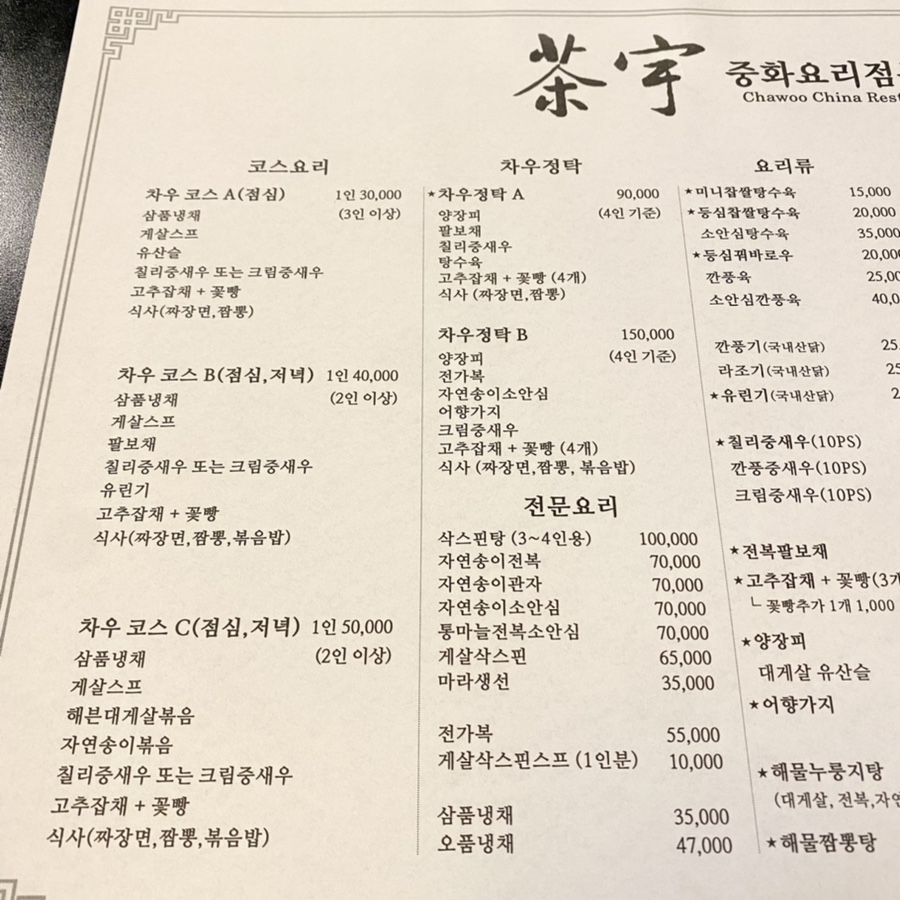 茶宇 중화요리점
Chawoo China
코스요리
차우 코스 A(점심) 1인 30,000
삼품냉채 (3인 이상)
게살스프
유산슬
칠리중새우 또는 크림중새우
고추잡채 + 꽃빵
식사(짜장면,짬뽕)
차우 코스 B(점심,저녁) 1인 40,000
삼품냉채 (2인 이상)
게살스프
팔보채
칠리중새우 또는 크림중새우
유린기
고추잡채 + 꽃빵
식사(짜장면,짬뽕,볶음밥)
차우 코스 C(점심,저녁) 1인 50,000
삼품냉채 (2인 이상)
게살스프
해븐대게살볶음
자연송이볶음
칠리중새우 또는 크림중새우
고추잡채 + 꽃빵
식사(짜장면,짬뽕,볶음밥)
차우정탁
★차우정탁 A 90,000
양장피 (4인 기준)
팔보채
칠리중새우
탕수육
고추잡채 + 꽃빵 (4개)
식사 (짜장면,짬뽕)
차우정탁 B 150,000
양장피 (4인 기준)
전가복
자연송이소안심
어향가지
크림중새우
고추잡채 + 꽃빵 (4개)
식사 (짜장면,짬뽕, 볶음밥)
전문요리
삭스핀탕 (3~4인용) 100,000
자연송이전복 70,000
자연송이관자 70,000
자연송이소안심 70,000
통마늘전복소안심 70,000
게살삭스핀 65,000
마라생선 35,000
전가복 55,000
게살삭스핀스프 (1인분) 10,000
삼품냉채 35,000
오품냉채 47,000
요리류
★미니찹쌀탕수육 15,000
★등심찹쌀탕수육 20,000
소안심탕수육 35,000
★등심꿔바로우 20,00
깐풍육 25,00
소안심깐풍육 40,0
깐풍기(국내산닭) 25
라조기(국내산닭) 25
★유린기(국내산닭) 2
★칠리중새우(10PS)
깐풍중새우(10PS)
크림중새우(10PS)
★전복팔보채
★고추잡채 + 꽃빵(3개
└ 꽃빵추가 1개 1,000
★양장피
대게살 유산슬
★어향가지
★해물누룽지탕
(대게살, 전복,자연
★해물짬뽕탕